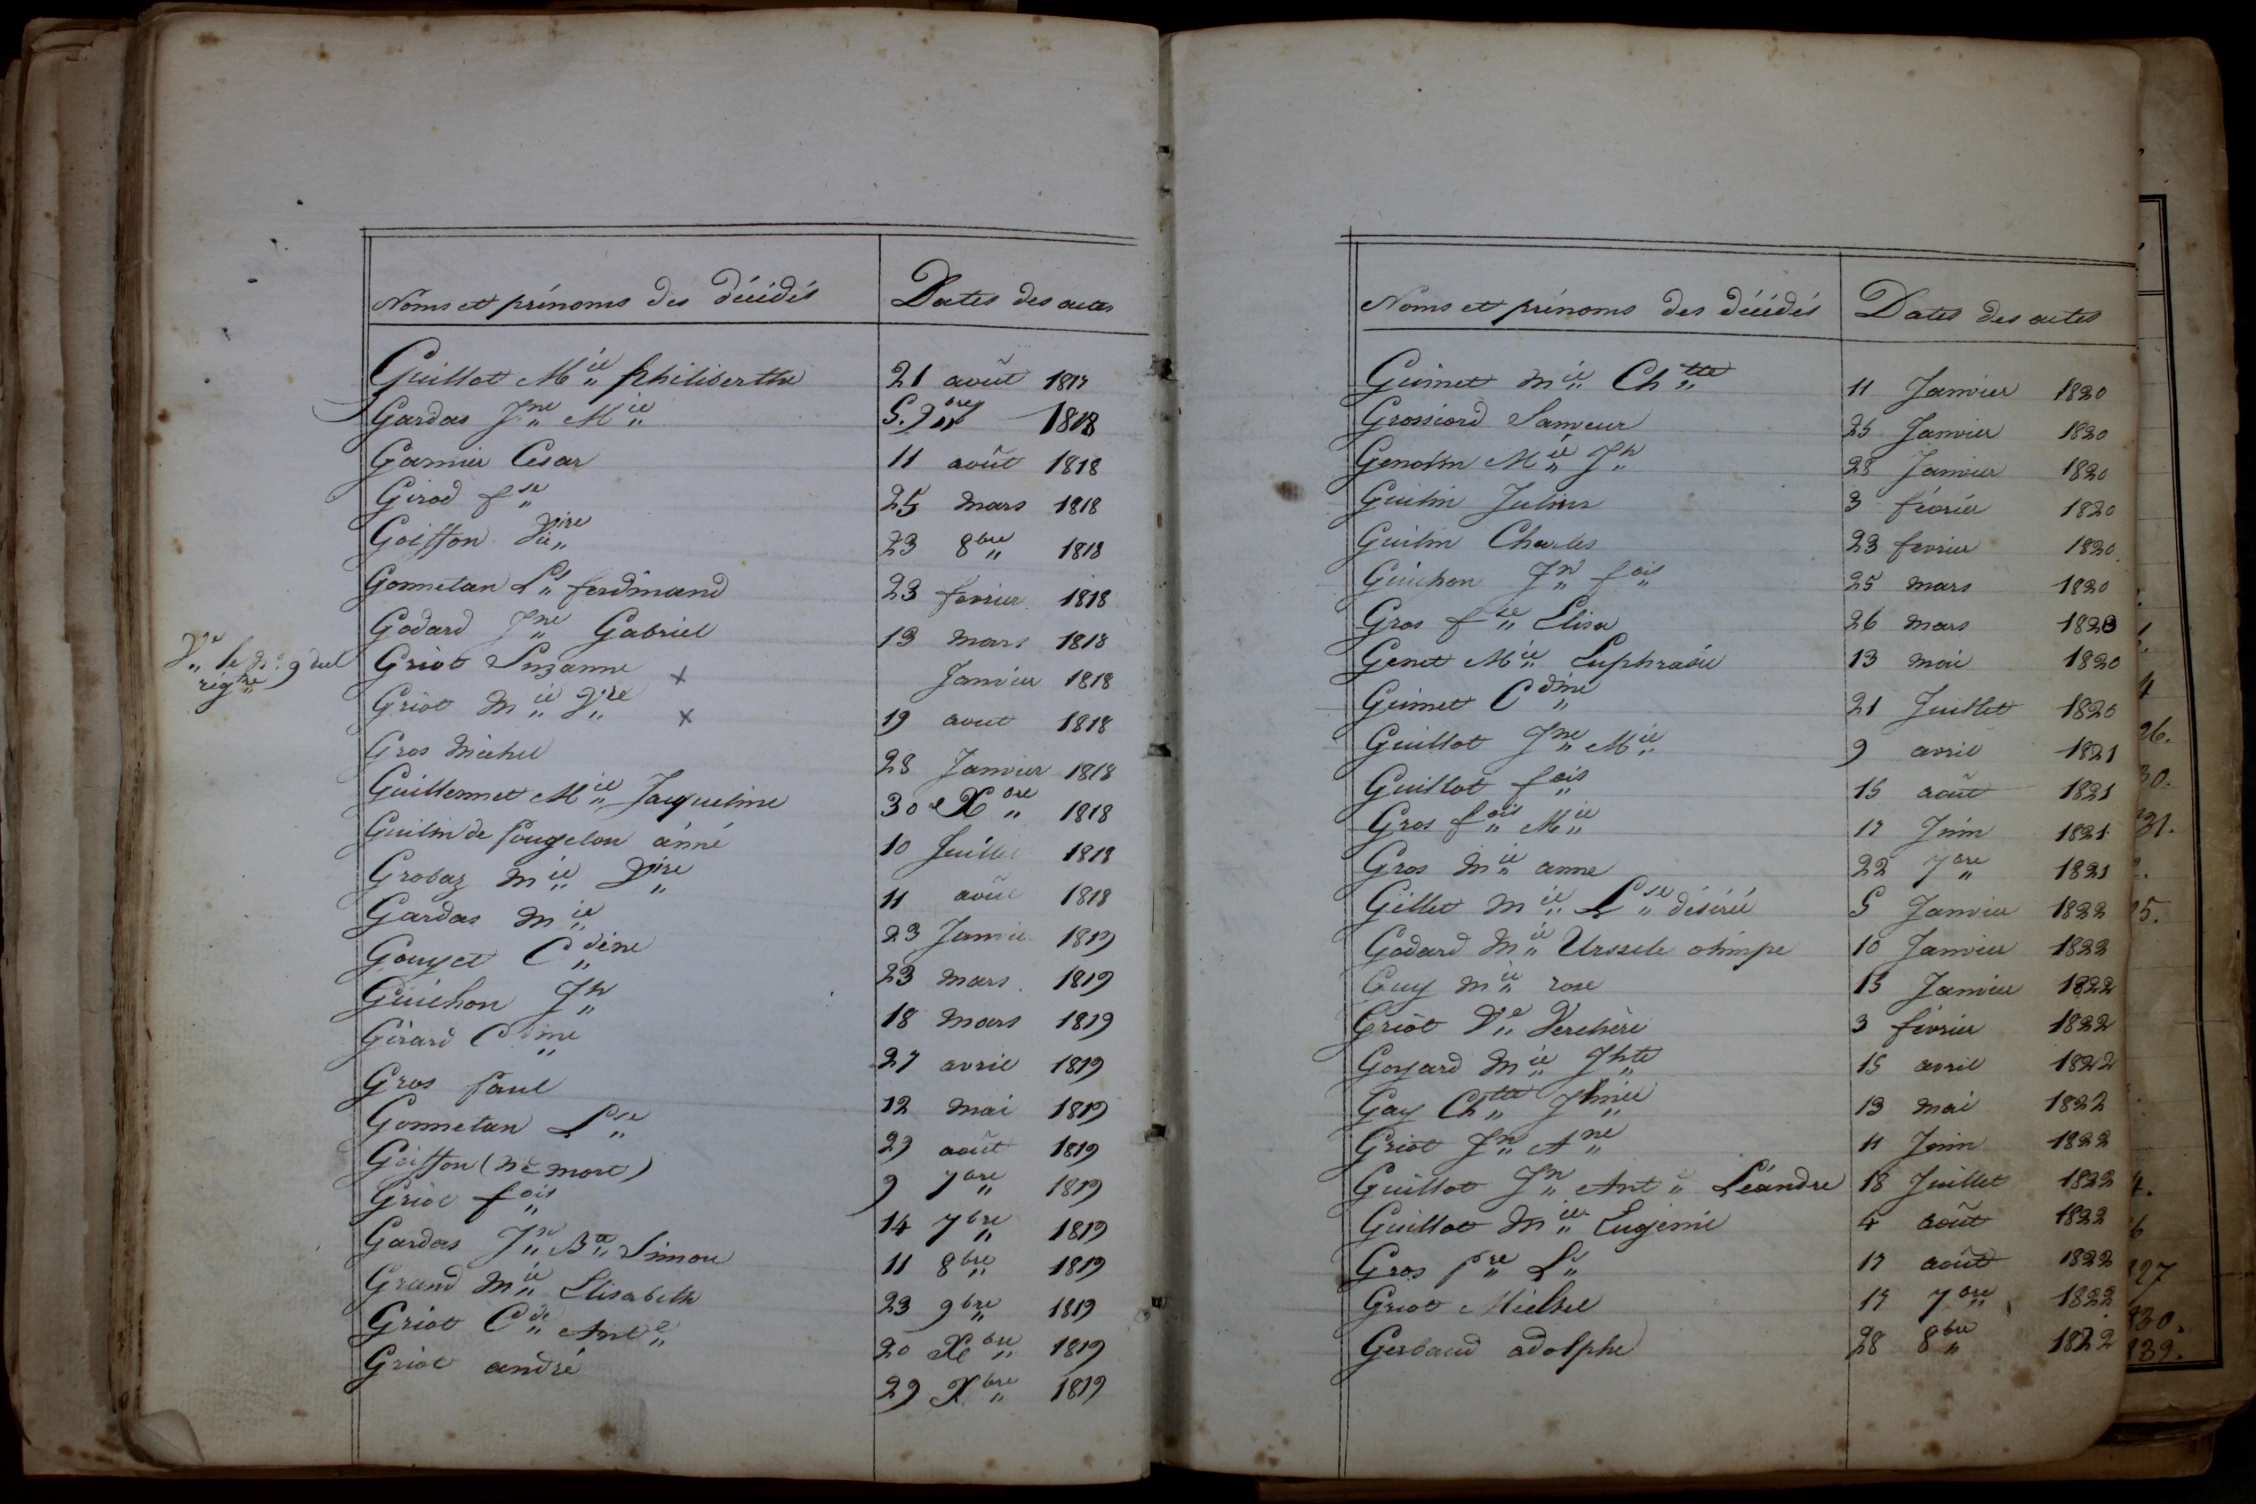 Noms et prénoms des décédés Dates des actes
Guillot Mie Philiberthe 21 août 1817
Gardas Jne Mie 5. 9bre 1818
Garnier Cesar 11 août 1818
Girod fse 25 mars 1818
Goiffon Vire 23 8bre 1818
Gonnetan Ls ferdinand 23 fevrier 1818
Godard Jne Gabriel 13 mars 1818
Ve le No 9 dud régtre
Griot Suzanne x Janvier 1818
Griot Mie Vire x 19 aout 1818
Gros Michel 28 Janvier 1818
Guillermet Mie Jacqueline 30 Xbre 1818
Guilin de Pougelon ánné 10 Juillet 1818
Grobaz Mie Vire 11 août 1818
Gardas Mie 23 Janvie 1819
Gouyet Cdine 23 mars 1819
Guichon Jh 18 mars 1819
Gérard Cdine 27 avril 1819
Gros Paul 12 mai 1819
Gonnetan Lse 29 août 1819
Goiffon (né mort) 9 7bre 1819
Griot fois 14 7bre 1819
Gardas Jn Bte Simon 11 8bre 1819
Grand Mie Elisabeth 23 9bre 1819
Griot Cde Ante 20 Xbre 1819
Griot andré 29 Xbre 1819
Noms et prénoms des décédés Dates des actes
Guimet Mie Chtte 11 Janvier 1820
Grossiord Sauveur 25 Janvier 1820
Genolin Mie Jh 28 Janvier 1820
Guilin Julius 3 février 1820
Guilin Charles 23 fevrier 1820
Guichon Jn fois 25 mars 1820
Gros fse Elisa 26 mars 1820
Genet Mie Euphrasie 13 mai 1820
Guimet Cdine 21 Juillet 1820
Guillot Jne Mie 9 avril 1821
Guillot fois 15 août 1821
Gros fois Mie 17 Juin 1821
Gros Mie anne 22 7bre 1821
Gillet Mie Lse désirée 5 Janvier 1822
Godard Mie Urssele olimpe 10 Janvier 1822
Guy Mie rose 15 Janvier 1822
Griot Ve Verchère 3 février 1822
Goyard Mie Jhte 15 avril 1822
Gay Chtte Jhine 13 mai 1822
Griot Jn Ane 11 Juin 1822
Guillot Jn Ante Léandre 18 Juillet 1822
Guillot Mie Eugénie 4 août 1822
Gros Pre Ls 17 août 1822
Griot Michel 17 7bre 1822
Gerbaud adolphe 28 8bre 1822